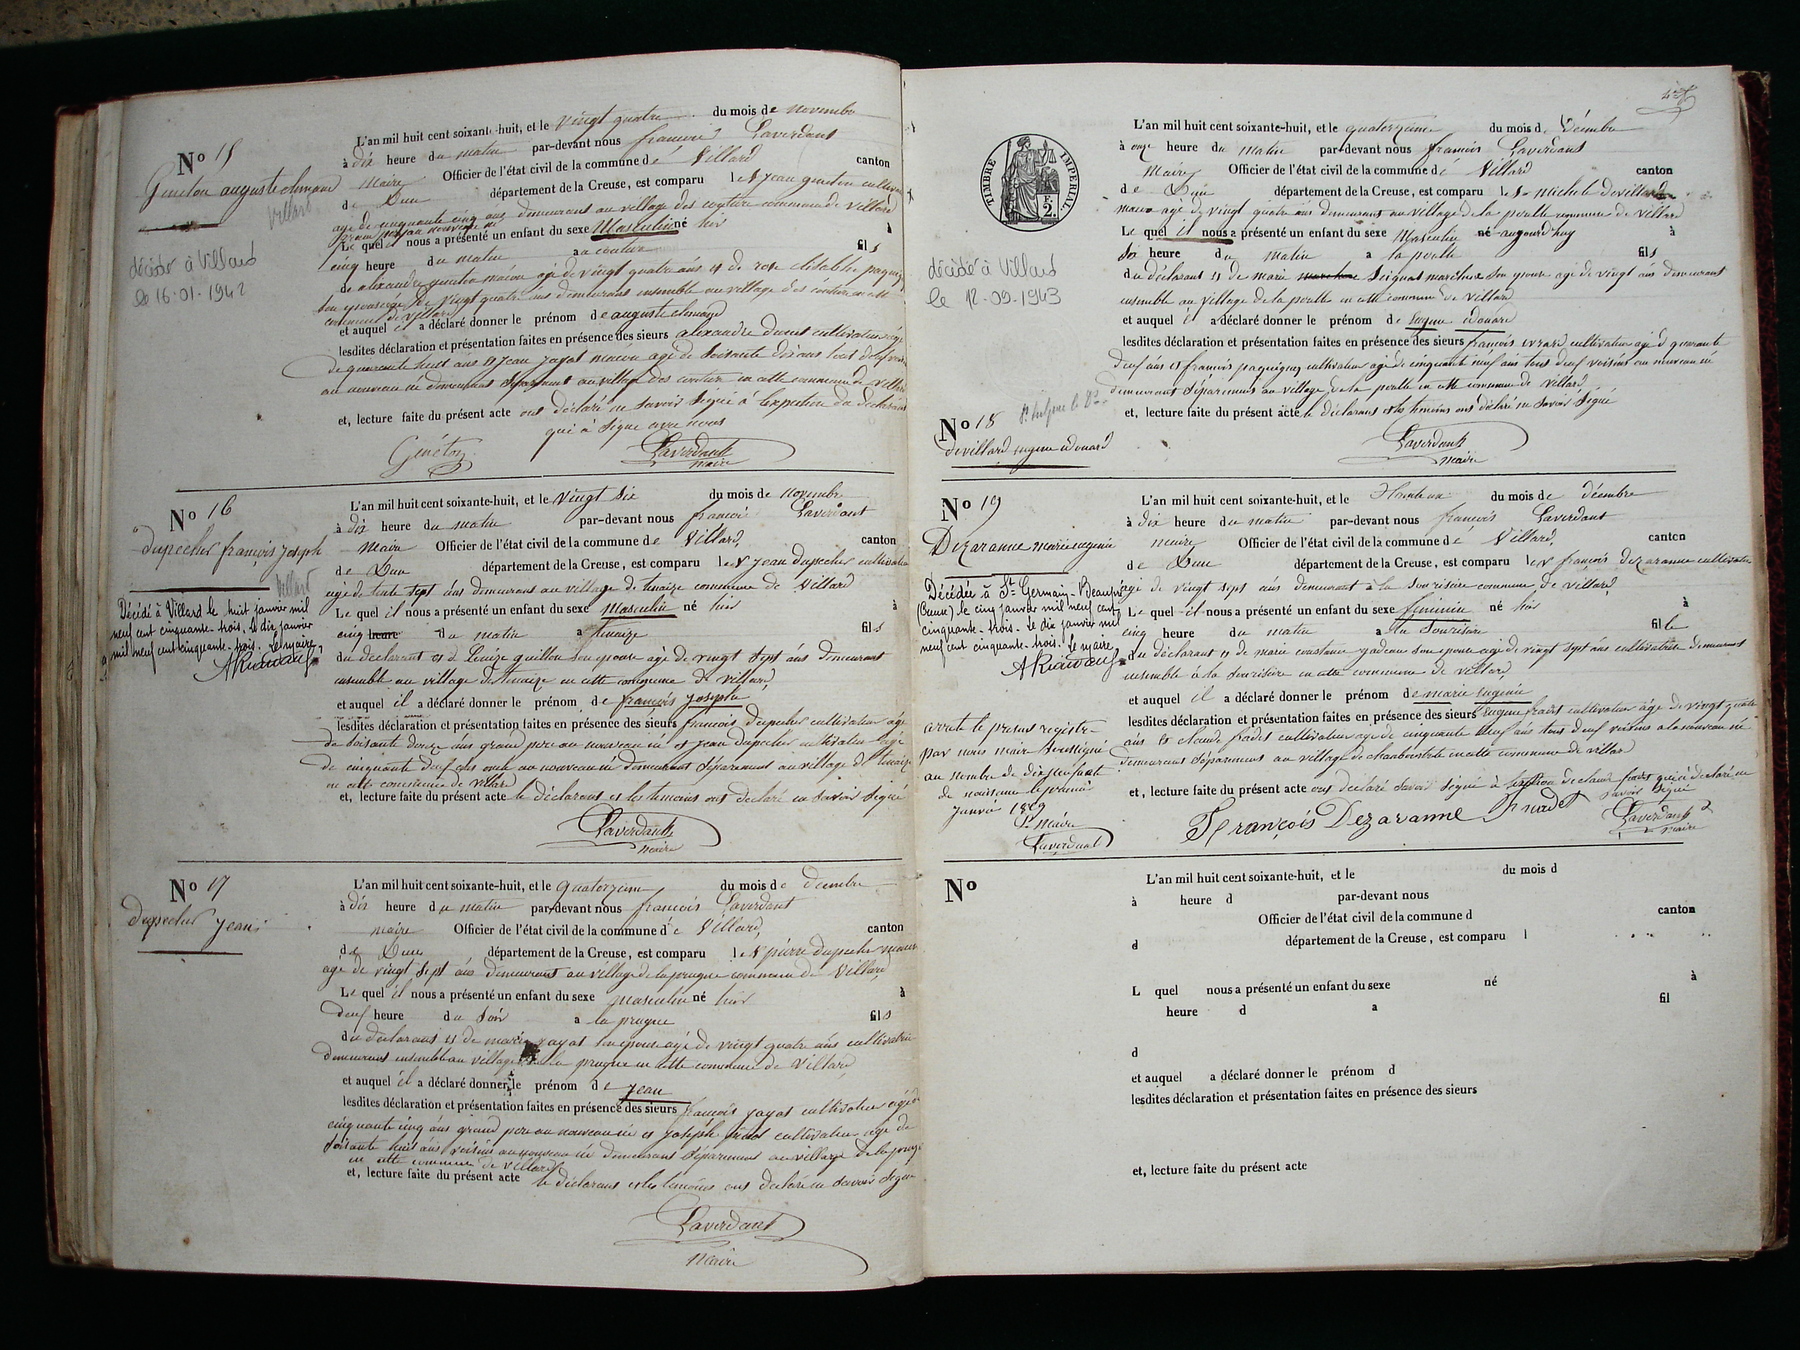 No 15
Genetou auguste clémand
Villard
décédé à Villard
le 16-01-1942
L'an mil huit cent soixante-huit, et le vingt quatre du mois de novembre
à dix heure du matin par-devant nous françois Laverdant
maire Officier de l'état civil de la commune de Villard canton
de Dun département de la Creuse, est comparu le S jean
agé de cinquante cinq ans demeurant au village des commune de Villard
Le quel il nous a présenté un enfant du sexe Masculin né hier à
cinq heure du matin au fils
de alexandre maçon agé de vingt quatre ans et de rose
son epouse agé de vingt quatre ans demeurant ensemble au village des
commune de Villard
et auquel il a déclaré donner le prénom de auguste clémand
lesdites déclaration et présentation faites en présence des sieurs alexandre cultivateur agé
de quarante huit ans et jean jayat maçon agé de soixante dix ans tous deux
au nouveau né demeurant séparément au village des en cette commune de Villard
et, lecture faite du présent acte ont déclaré ne savoir signé à l'exception du déclarant
qui à signé avec nous
Genéton Laverdant
maire
No 16
dupecher françois joseph
Villard
Décédé à Villard le huit janvier mil
neuf cent cinquante-trois. Le dix janvier
mil neuf cent cinquante-trois. Le maire,
L'an mil huit cent soixante-huit, et le vingt six du mois de novembre
à dix heure du matin par-devant nous françois Laverdant
maire Officier de l'état civil de la commune de Villard, canton
de Dun département de la Creuse, est comparu le S jean dupecher cultivateur
agé de trente sept ans demeurant au village de commune de Villard
Le quel il nous a présenté un enfant du sexe Masculin né hier à
cinq heure du matin a fils
du déclarant et de Louize guillon son epouse agé de vingt sept ans demeurant
ensemble au village de en cette commune de Villard
et auquel il a déclaré donner le prénom de françois joseph
lesdites déclaration et présentation faites en présence des sieurs françois dupecher cultivateur agé
de soixante douze ans grand pere au nouveau né et jean dupecher cultivateur agé
de cinquante deux ans oncle au nouveau né demeurant séparément au village de
en cette commune de Villard
et, lecture faite du présent acte le déclarant et les temoins ont déclaré ne savoir signé
Laverdant
maire
No 17
dupecher jean
L'an mil huit cent soixante-huit, et le quatorzieme du mois de décembre
à dix heure du matin par-devant nous françois Laverdant
maire Officier de l'état civil de la commune de Villard, canton
de Dun département de la Creuse, est comparu le S pierre dupecher maçon
agé de vingt sept ans demeurant au village de la prugne commune de Villard
Le quel il nous a présenté un enfant du sexe masculin né hier à
deux heure du soir a la prugne fils
du déclarant et de marie jayat son epouse agé de vingt quatre ans cultivatrice
demeurant ensemble au village de la prugne en cette commune de Villard
et auquel il a déclaré donner le prénom de jean
lesdites déclaration et présentation faites en présence des sieurs françois jayat cultivateur agé de
cinquante cinq ans grand pere au nouveau né et joseph cultivateur agé de
soixante huit ans voisins au nouveau né demeurant séparément au village de la prugne
en cette commune de Villard
et, lecture faite du présent acte le déclarant et les temoins ont déclaré ne savoir signé
Laverdant
maire
TIMBRE IMPERIAL
F.
2.
décédé à Villard
le 12-09-1943
No 18
devillard eugene edouard
L'an mil huit cent soixante-huit, et le quatorzieme du mois d décembre
à onze heure du matin par-devant nous françois Laverdant
Maire Officier de l'état civil de la commune de Villard canton
de Dun département de la Creuse, est comparu le S michel devillard
maçon agé de vingt quatre ans demeurant au village de la commune de Villard
Le quel il nous a présenté un enfant du sexe Masculin né aujourd'huy à
six heure du matin a la fils
du déclarant et de marie seignat son epouse agé de vingt ans demeurant
ensemble au village de la en cette commune de Villard
et auquel il a déclaré donner le prénom de eugene edouard
lesdites déclaration et présentation faites en présence des sieurs françois cultivateur agé d quarante
deux ans et françois paquignon cultivateur agé de cinquante neuf ans tous deux voisins au nouveau né
demeurant séparément au village de la en cette commune de Villard
et, lecture faite du présent acte le déclarant et les temoins ont déclaré ne savoir signé
Laverdant
maire
No 19
Dezaranne marie eugénie
Décédée à St-Germain-Beaupré
(Creuse) le cinq janvier mil neuf cent
cinquante-trois. Le dix janvier mil
neuf cent cinquante-trois. Le maire,
arrêté le présent registre
par nous maire soussigné
au nombre de dix neuf acte
de naissance le premier
janvié 1869
Le Maire
Laverdant
L'an mil huit cent soixante-huit, et le du mois de décembre
à dix heure du matin par-devant nous françois Laverdant
maire Officier de l'état civil de la commune de Villard, canton
de Dun département de la Creuse, est comparu le S françois dezaranne cultivateur
agé de vingt sept ans demeurant à la Souriserie commune de Villard
Le quel il nous a présenté un enfant du sexe féminin né hier à
cinq heure du matin a la Souriserie fille
du déclarant et de marie constance son epouse agé de vingt sept ans cultivatrice demeurant
ensemble à la Souriserie en cette commune de Villard
et auquel il a déclaré donner le prénom de marie eugénie
lesdites déclaration et présentation faites en présence des sieurs Eugene fradet cultivateur agé de vingt quatre
ans et claude fradet cultivateur agé de cinquante neuf ans tous deux voisins a la nouveau né
demeurant séparément au village de en cette commune de Villard
et, lecture faite du présent acte ont déclaré savoir signé à l'exception de claude fradet qui a déclaré ne
savoir signé
François Dezaranne fradet Laverdant
maire
No
L'an mil huit cent soixante-huit, et le du mois d
à heure d par-devant nous
Officier de l'état civil de la commune d canton
d département de la Creuse, est comparu l
L quel nous a présenté un enfant du sexe né à
heure d a fil
d
et auquel a déclaré donner le prénom d
lesdites déclaration et présentation faites en présence des sieurs
et, lecture faite du présent acte